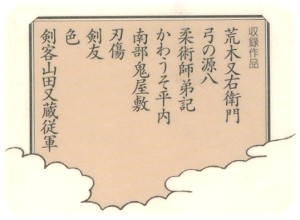 収録作品
荒木又右衛門
弓の源八
柔術師弟記
かわうそ平内
南部鬼屋敷
刃傷
剣友
色
剣客山田又蔵従軍